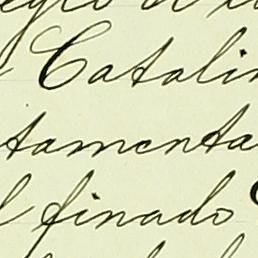 Catalin
tamenta
l finado